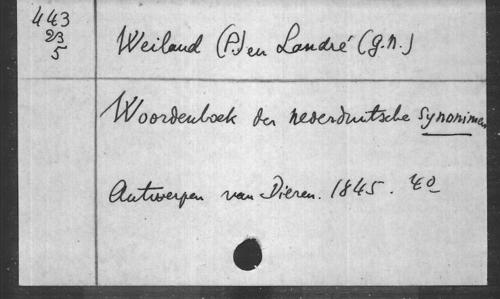 443
23
5
Weiland (P.) en Landré (G.N.)
Woordenboek der nederduitsche synonimen
Antwerpen van Dieren. 1845. 4o